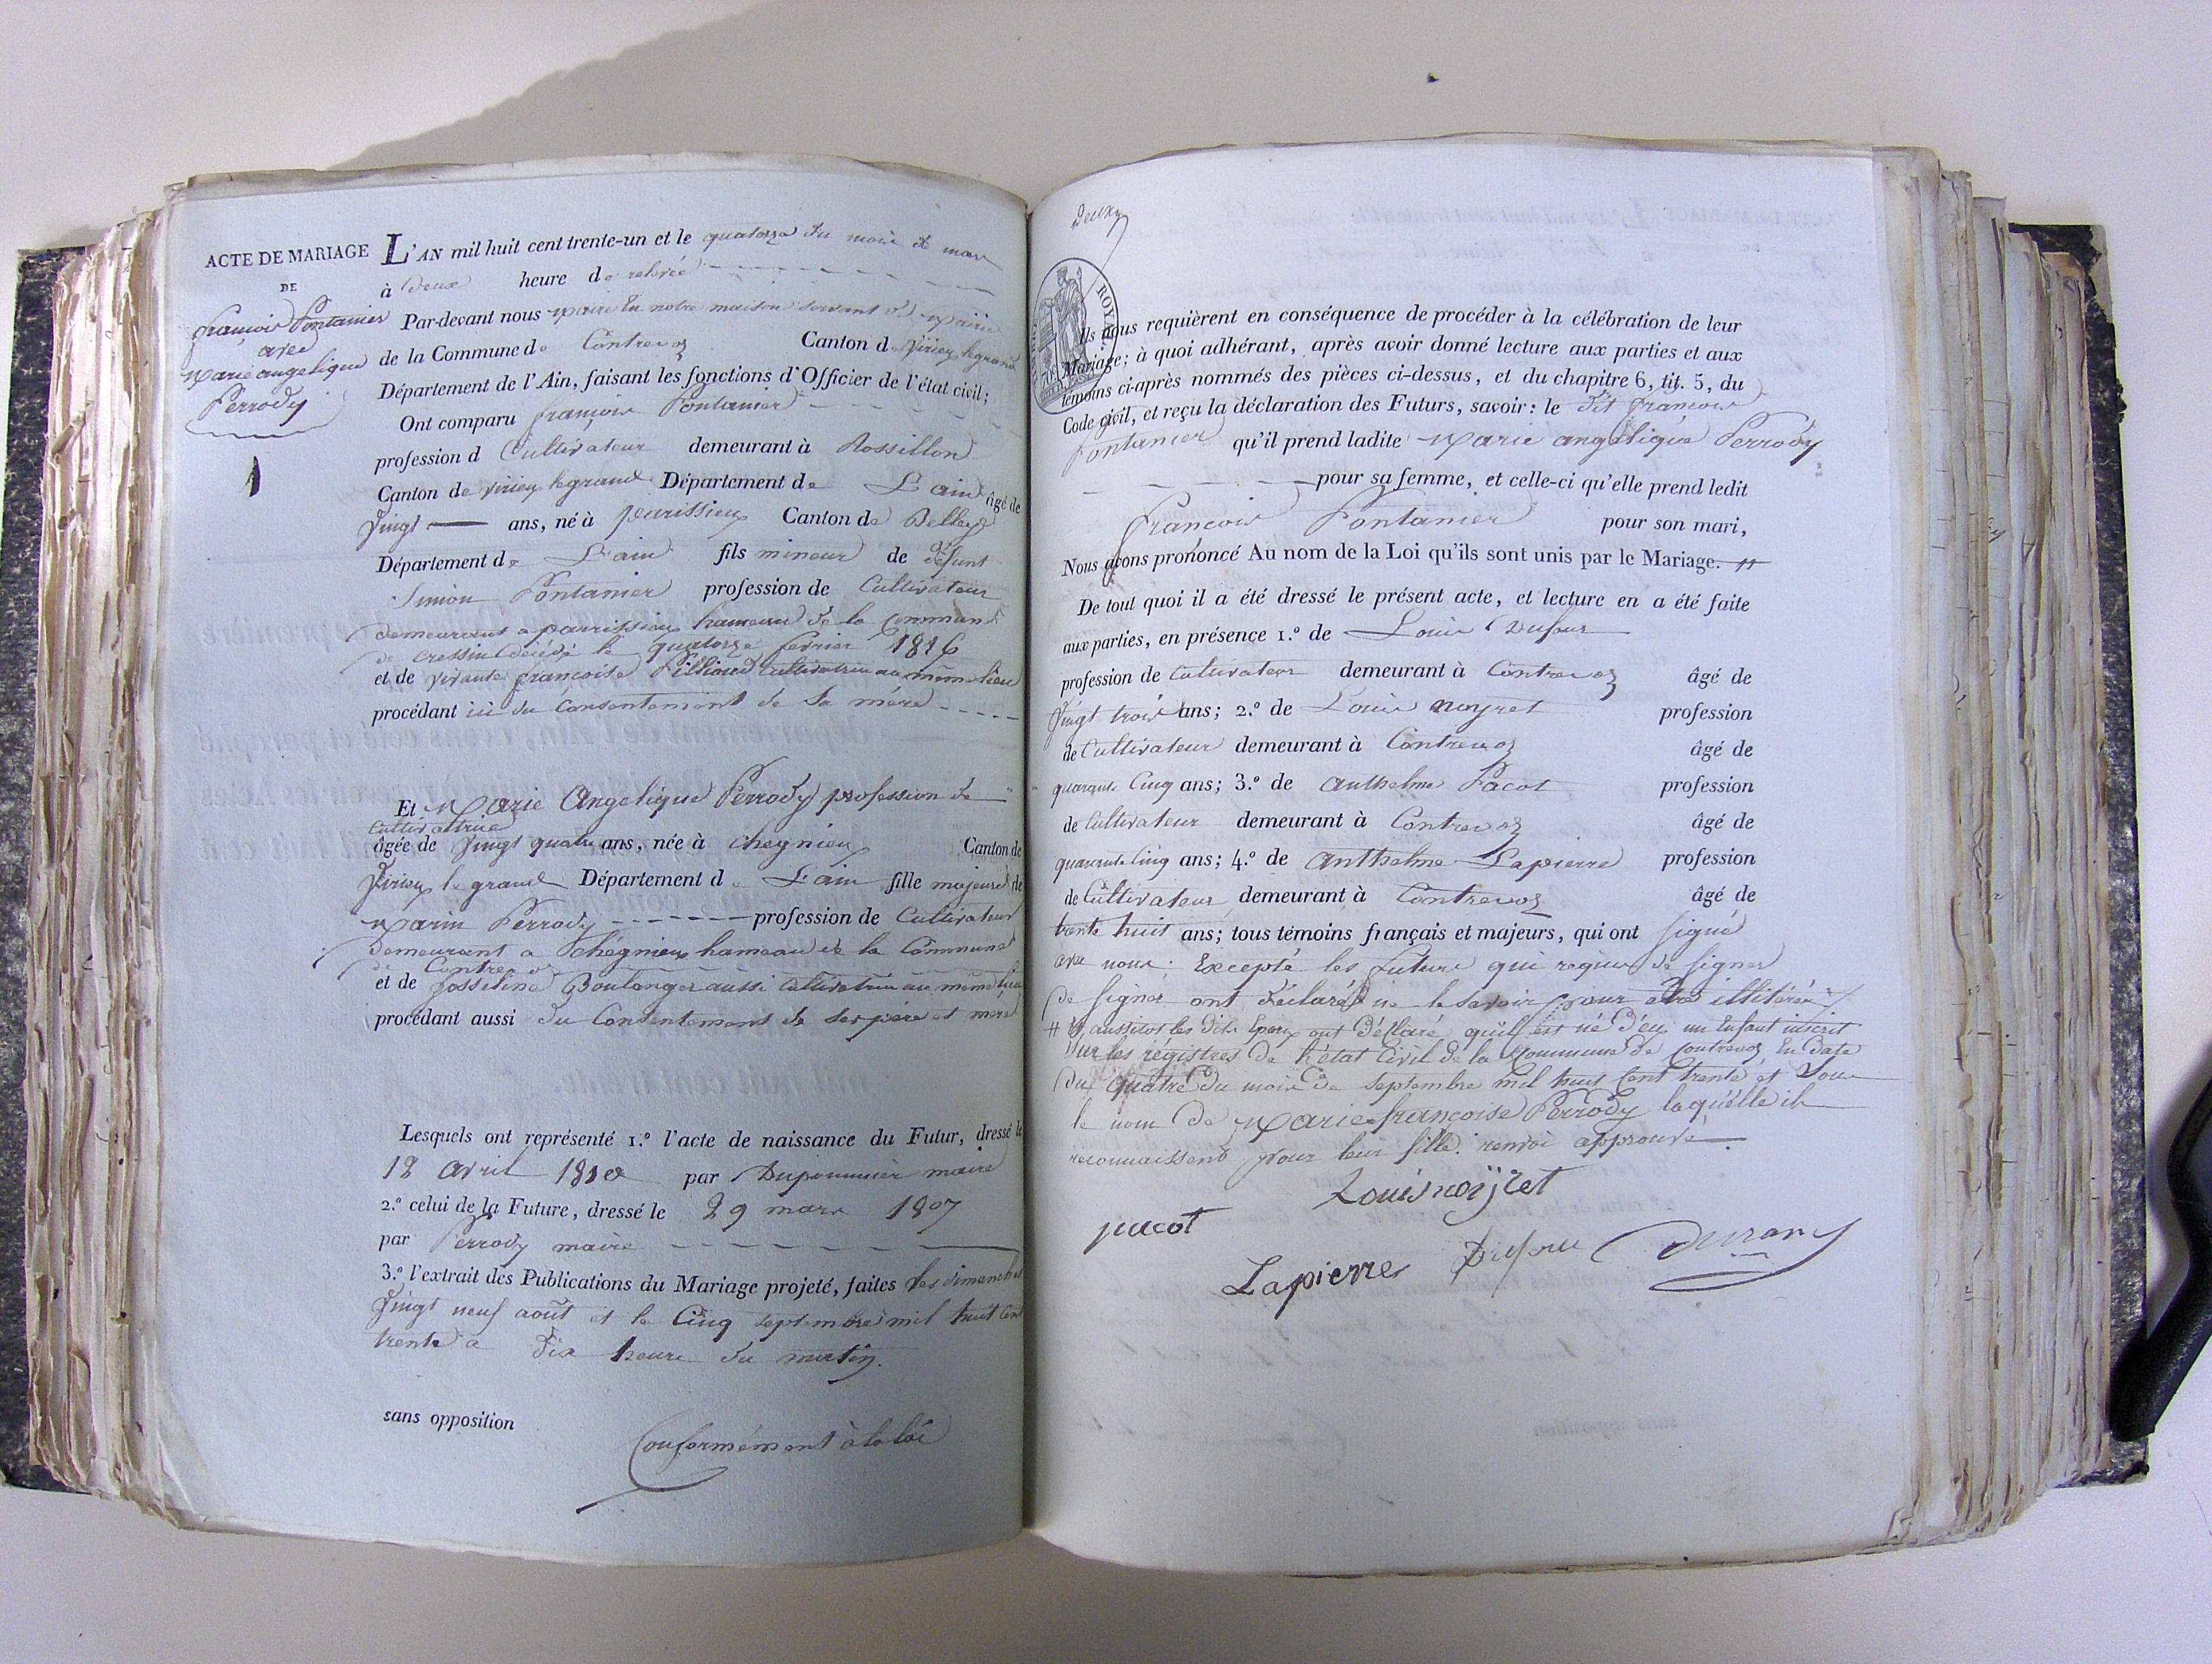 ACTE DE MARIAGE
DE
françois Pontanier
avec
Marie angelique
Perrody
1
L'AN mil huit cent trente-un et le quatorze du mois de mars
à deux heure de relevée
Par-devant nous maire en notre maison servant de mairie
de la Commune de Contrevoz Canton de Virieu legrand
Département de l'Ain, faisant les fonctions d'Officier de l'état civil;
Ont comparu françois Pontanier
profession d Cultivateur demeurant à Rossillon
Canton de virieu legrand Département de L'ain âgé de
Vingt ans, né à parissieu Canton de Belley
Département de L'ain fils mineur de défunt
Simon Pontanier profession de Cultivateur
demeurant a parrissieu hameau de la Commune
de Cressin décédé le quatorze fevrier 1816
et de vivante françoise Pilliond cultivatrice au même lieu
procédant ici du Consentement de sa mére
Et Marie Angelique Perrody profession de
Cultivatrice
âgée de Vingt quatre ans, née à chegnieu Canton de
Virieu le grand Département d L'ain fille majeure de
Marin Perrody profession de Cultivateur
demeurant a Chegnieu hameau de la Commune
de Contrevoz
et de Josseline Boulanger aussi Cultivatrice au même lieu
procédant aussi du Consentement de ses père et mére
Lesquels ont représenté 1.º l'acte de naissance du Futur, dressé le
18 avril 1810 par Duponnier maire
2.º celui de la Future, dressé le 29 mars 1807
par Perrody maire
3.º l'extrait des Publications du Mariage projeté, faites les dimanches
Vingt neuf août et le Cinq septembre mil huit Cent
trente a dix heure du matin.
sans opposition
Conformément à la loi
deux
ROY
Ils nous requièrent en conséquence de procéder à la célébration de leur
Mariage; à quoi adhérant, après avoir donné lecture aux parties et aux
témoins ci-après nommés des pièces ci-dessus, et du chapitre 6, tit. 5, du
Code civil, et reçu la déclaration des Futurs, savoir: le dit françois
Pontanier qu'il prend ladite Marie angélique Perrody
pour sa femme, et celle-ci qu'elle prend ledit
François Pontanier pour son mari,
Nous avons prononcé Au nom de la Loi qu'ils sont unis par le Mariage. #
De tout quoi il a été dressé le présent acte, et lecture en a été faite
aux parties, en présence 1.º de Louis Dufour
profession de Cultivateur demeurant à Contrevoz âgé de
Vingt trois ans; 2.º de Louis Noyret profession
de Cultivateur demeurant à Contrevoz âgé de
quarante Cinq ans; 3.º de Anthelme Pacot profession
de Cultivateur demeurant à Contrevoz âgé de
quarante Cinq ans; 4.º de Anthelme Lapierre profession
de Cultivateur demeurant à Contrevoz âgé de
trente huit ans; tous témoins français et majeurs, qui ont signé
avec nous; Excepté les future qui requis de signer
de signer ont déclaré ne le savoir pour etre illitérés
# Et aussitot les dits Epoux ont déclaré qu'il est né d'eux un Enfant inscrit
Sur les régistres de l'état Civil de la Commune de Contrevoz En date
du quatre du mois de septembre mil huit Cent trente et Sous
le nom de Marie françoise Perrody laquelle ils
reconnaissent pour leur fille. renvoi approuvé
Louis noÿret
pacot
Lapierre Dufour Durand